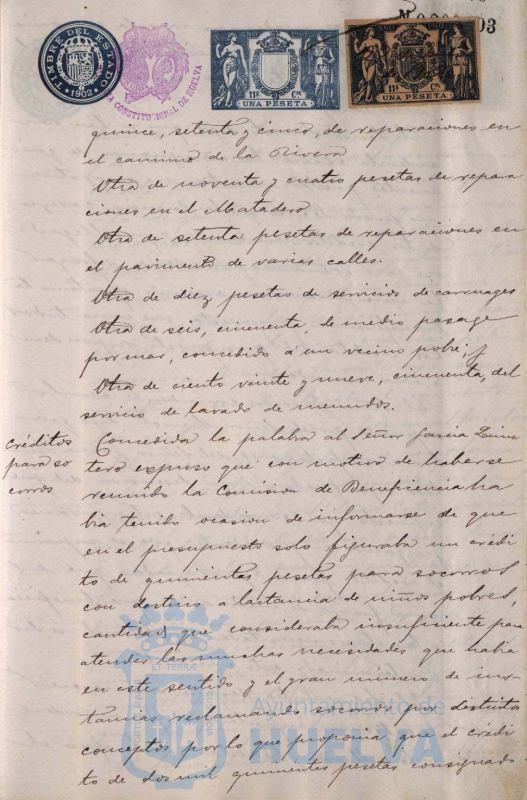 TIMBRE DEL ESTADO
1902
CONSTITUCIONAL DE HUELVA
AÑO 1902
11ª Cª
UNA PESETA
11ª Cª
UNA PESETA
93
quince, setenta y cinco, de reparaciones en
el camino de la Rivera
Otra de noventa y cuatro pesetas de repara
ciones en el Matadero.
Otra de setenta pesetas de reparaciones en
el pavimento de varias calles.
Otra de diez pesetas de servicios de carruages
Otra de seis, cincuenta, de medio pasage
por mar, concedido á un vecino pobre; y
Otra de ciento veinte y nueve, cincuenta, del
servicio de lavado de menudos.
Créditos
para so
corros
Concedida la palabra al Señor Garcia Quin
tero expuso que con motivo de haberse
reunido la Comision de Beneficencia ha
bia tenido ocasion de informarse de que
en el presupuesto solo figuraba un crédi
to de quinientas pesetas para socorros
con destino á lactancia de niños pobres,
cantidad que consideraba insuficiente para
atender las muchas necesidades que habia
en este sentido y el gran número de ins
tancias reclamando socorros por distintos
conceptos por lo que proponia que el crédi
to de dos mil quinientas pesetas consignado
Ayuntamiento de
HUELVA